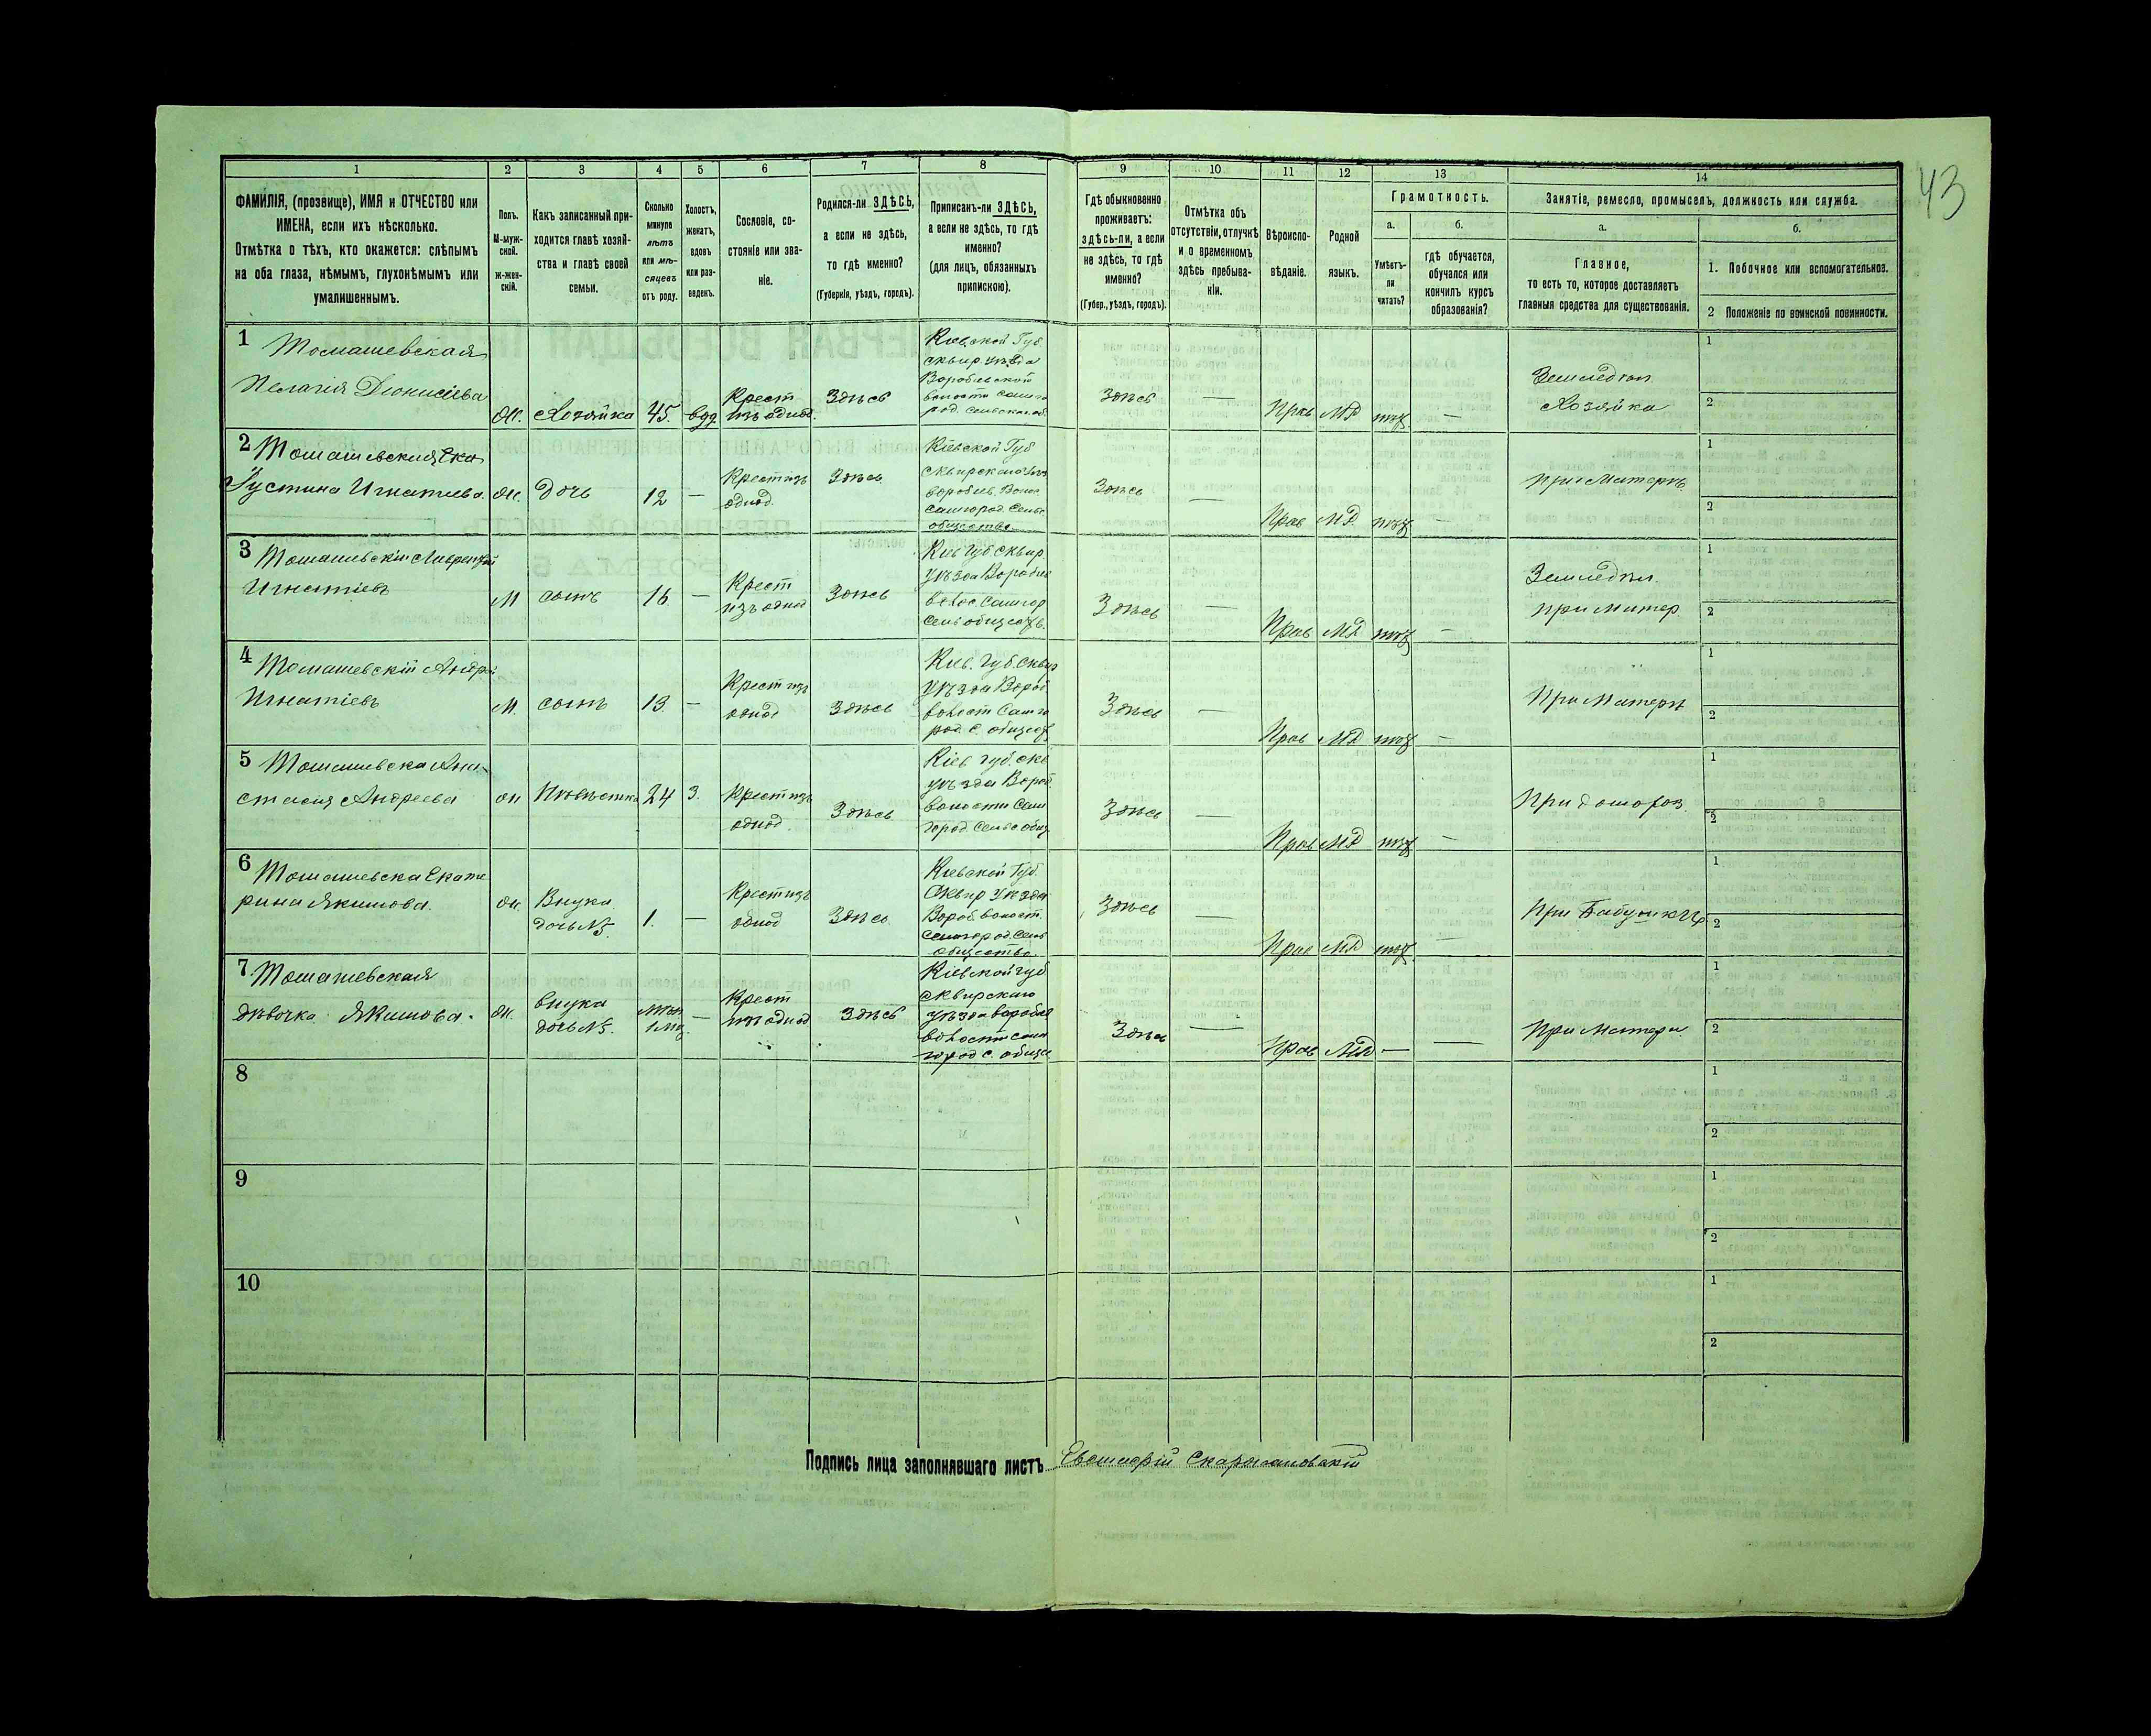 43
1
2
3
4
5
6
7
8
9
10
11
12
13
14
ФАМИЛІЯ, (прозвище), ИМЯ и ОТЧЕСТВО или
ИМЕНА, если ихъ нѣсколько.
Отмѣтка о тѣхъ, кто окажется: слѣпымъ
на оба глаза, нѣмымъ, глухонѣмымъ или
умалишеннымъ.
Полъ.
М-муж-
ской.
ж-жен-
скій.
Какъ записанный при-
ходится главѣ хозяй-
ства и главѣ своей
семьи.
Сколько
минуло
лѣтъ
или мѣ-
сяцевъ
отъ роду.
Холостъ,
женатъ,
вдовъ
или раз-
веденъ.
Сословіе, со-
стояніе или зва-
ніе.
Родился-ли ЗДѢСЬ,
а если не здѣсь,
то гдѣ именно?
(Губернія, уѣздъ, городъ).
Приписанъ-ли ЗДѢСЬ,
а если не здѣсь, то гдѣ
именно?
(для лицъ, обязанныхъ
припискою).
Гдѣ обыкновенно
проживаетъ:
здѣсь-ли, а если
не здѣсь, то гдѣ
именно?
(Губер., уѣздъ, городъ).
Отмѣтка объ
отсутствіи, отлучкѣ
и о временномъ
здѣсь пребыва-
ніи.
Вѣроиспо-
вѣданіе.
Родной
языкъ.
Грамотность.
а.
Умѣетъ-
ли
читать?
б.
гдѣ обучается,
обучался или
кончилъ курсъ
образованія?
Занятіе, ремесло, промыселъ, должность или служба.
а.
Главное,
то есть то, которое доставляетъ
главныя средства для существованія.
б.
1. Побочное или вспомогательное.
2 Положеніе по воинской повинности.
1 Томашевская
Пелагія Діонисіева
ж. Хозяйка 45. вд.
Крест
изъ однод.
Здѣсь
Кіевской Губ.
сквир. уѣзда
Воробьевской
волости Самго
род. Сельск. об.
Здѣсь — Прав МР —
Земледѣл.
Хозяйка
1
2
2 Томашевская
Устина Игнатіева ж. Дочь 12 —
Крест изъ
однод.
Здѣсь
Кіевской Губ
Сквирскаго
воробьев. Волос.
Самгород. Сельс
общества
Здѣсь — Прав МР —
При Матери
1
2
3 Томашевскій Лаврентій
Игнатіевъ М сынъ 16 —
Крест
изъ однод
Здѣсь
Кіев Губ Сквир
уѣзда Воробьев
волос. Самгор
Сель обществ.
Здѣсь — Прав МР —
Земледѣл.
при Матер
1
2
4 Томашевскій Андрей
Игнатіевъ М. сынъ 13 —
Крест изъ
однод
Здѣсь
Кіев. Губ. Сквир
уѣзда Вороб
волост Самго
род. с. общест
Здѣсь — Прав МР —
При Матери
1
2
5 Томашевска Ана-
стасія Андреева ж Невѣстка 24 З.
Крест изъ
однод
Здѣсь
Кіев губ. скв
уѣзда Вороб.
волости Сам
город. Сельс общ
Здѣсь — Прав МР —
При домохоз.
1
2
6 Томашевска Екате
рина Якимова. ж.
Внука
дочь №5. 1. —
Крест изъ
однод
Здѣсь
Кіевской Губ.
Сквир уѣзда
Вороб волост.
Самгород. Сель
общество.
Здѣсь — Прав МР —
При Бабушкѣ
1
2
7. Томашевская
дѣвочка Якимова. ж.
внука
дочь №5. —
Крест
изъ однод
Здѣсь
Кіевской губ
сквирскаго
уѣзда воробьев
волост сам
город с. общес
Здѣсь — Прав МР — —
При Матери
1
2
8
1
2
9
1
2
10
1
2
Подпись лица заполнявшаго листъ